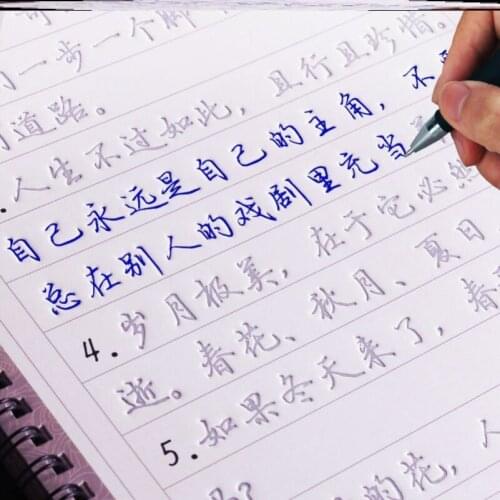 一步一个脚
道路。
人生不过如此，且行且珍惜。
自己永远是自己的主角，不要
总在别人的戏剧里充当着
4. 岁月极美，在于它必然
逝。春花、秋月、夏日
5. 如果冬天来了，春
的花，人